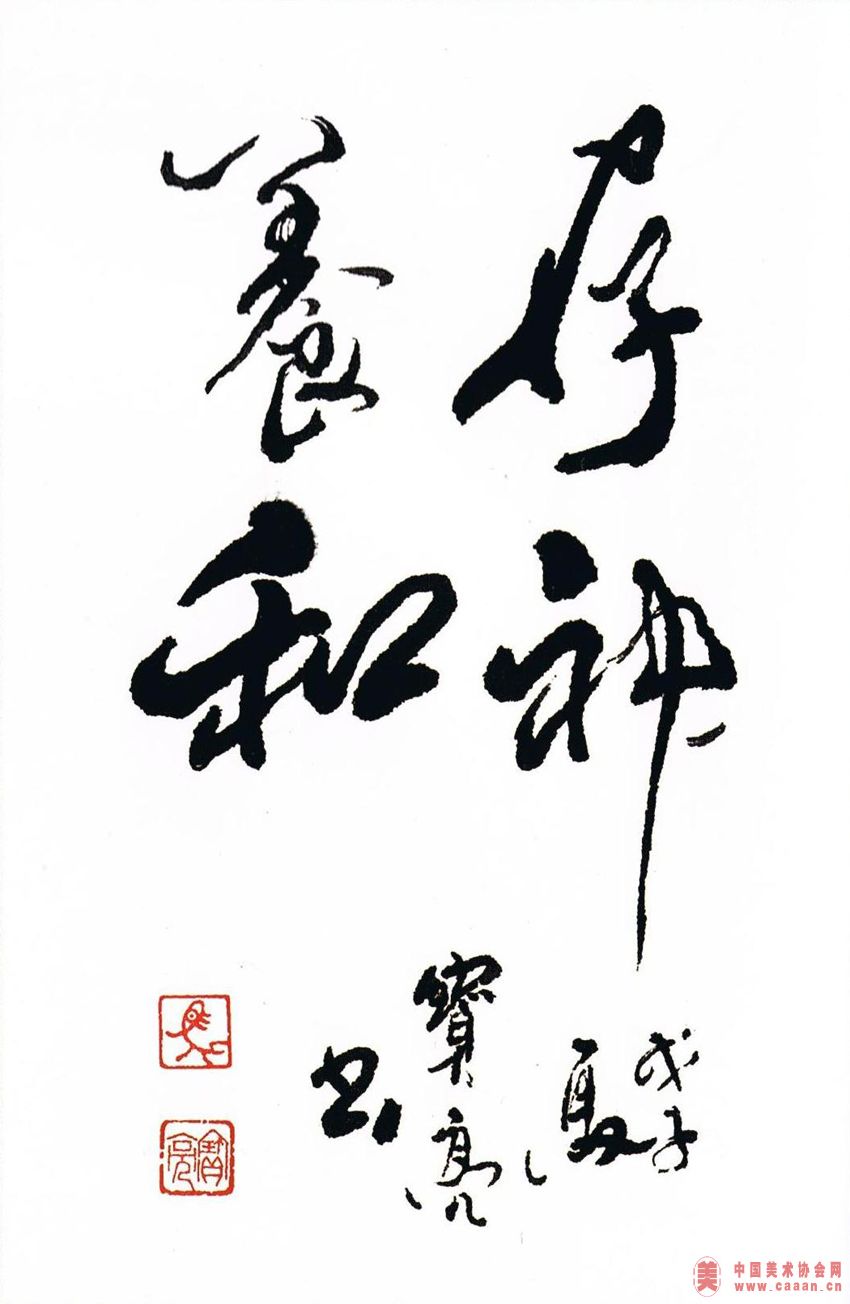 存神
養和
戊子
夏
寶亮
书
寶亮
美
中国美术协会网
www.caaan.cn